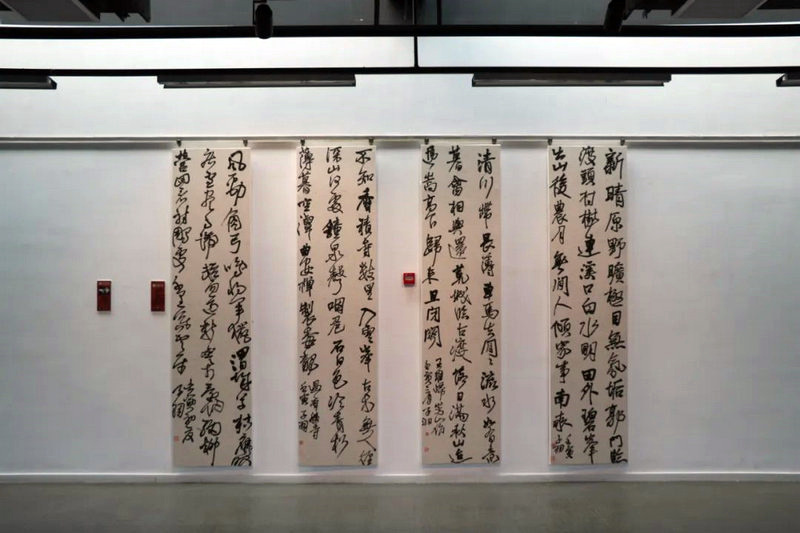 新晴原野曠極目無氛垢郭門臨
渡頭村樹連溪口白水明田外碧峰
出山後農月無閒人傾家事南畝
壬寅
清川帶長薄車馬去閒〻流水如有意
暮禽相與還荒城臨古渡落日滿秋山迢
遞嵩高下歸來且閉關
王維歸嵩山作
不知香積寺數里入雲峰古木無人徑
深山何處鐘泉聲咽危石日色冷青松
薄暮空潭曲安禪製毒龍
過香積寺
壬寅
風勁角弓鳴將軍獵渭城草枯鷹眼
疾雪盡馬蹄輕忽過新豐市還歸細柳
營回看射鵰處千里暮雲平